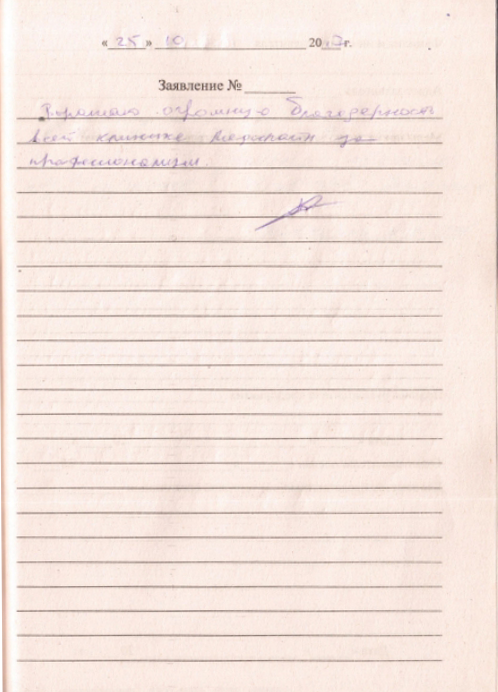 « 25 » 10. 2017г.
Заявление №
Выражаю огромную благодарность
всей клинике за
профессионализм.